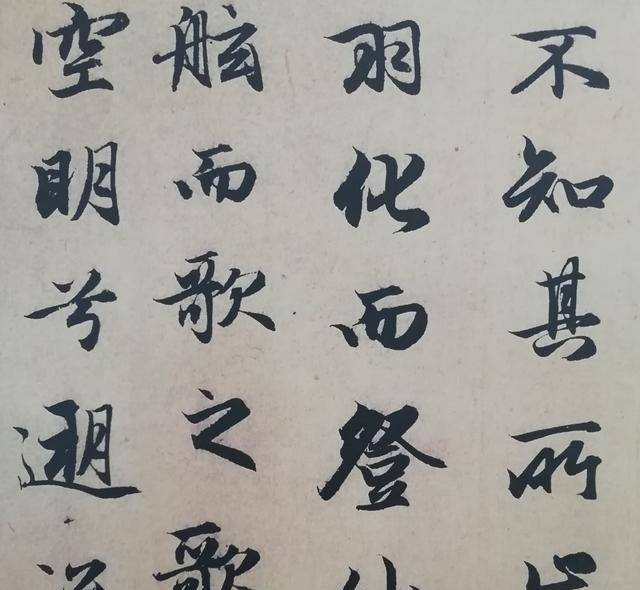 不知其所止
羽化而登仙
舷而歌之歌
空明兮遡